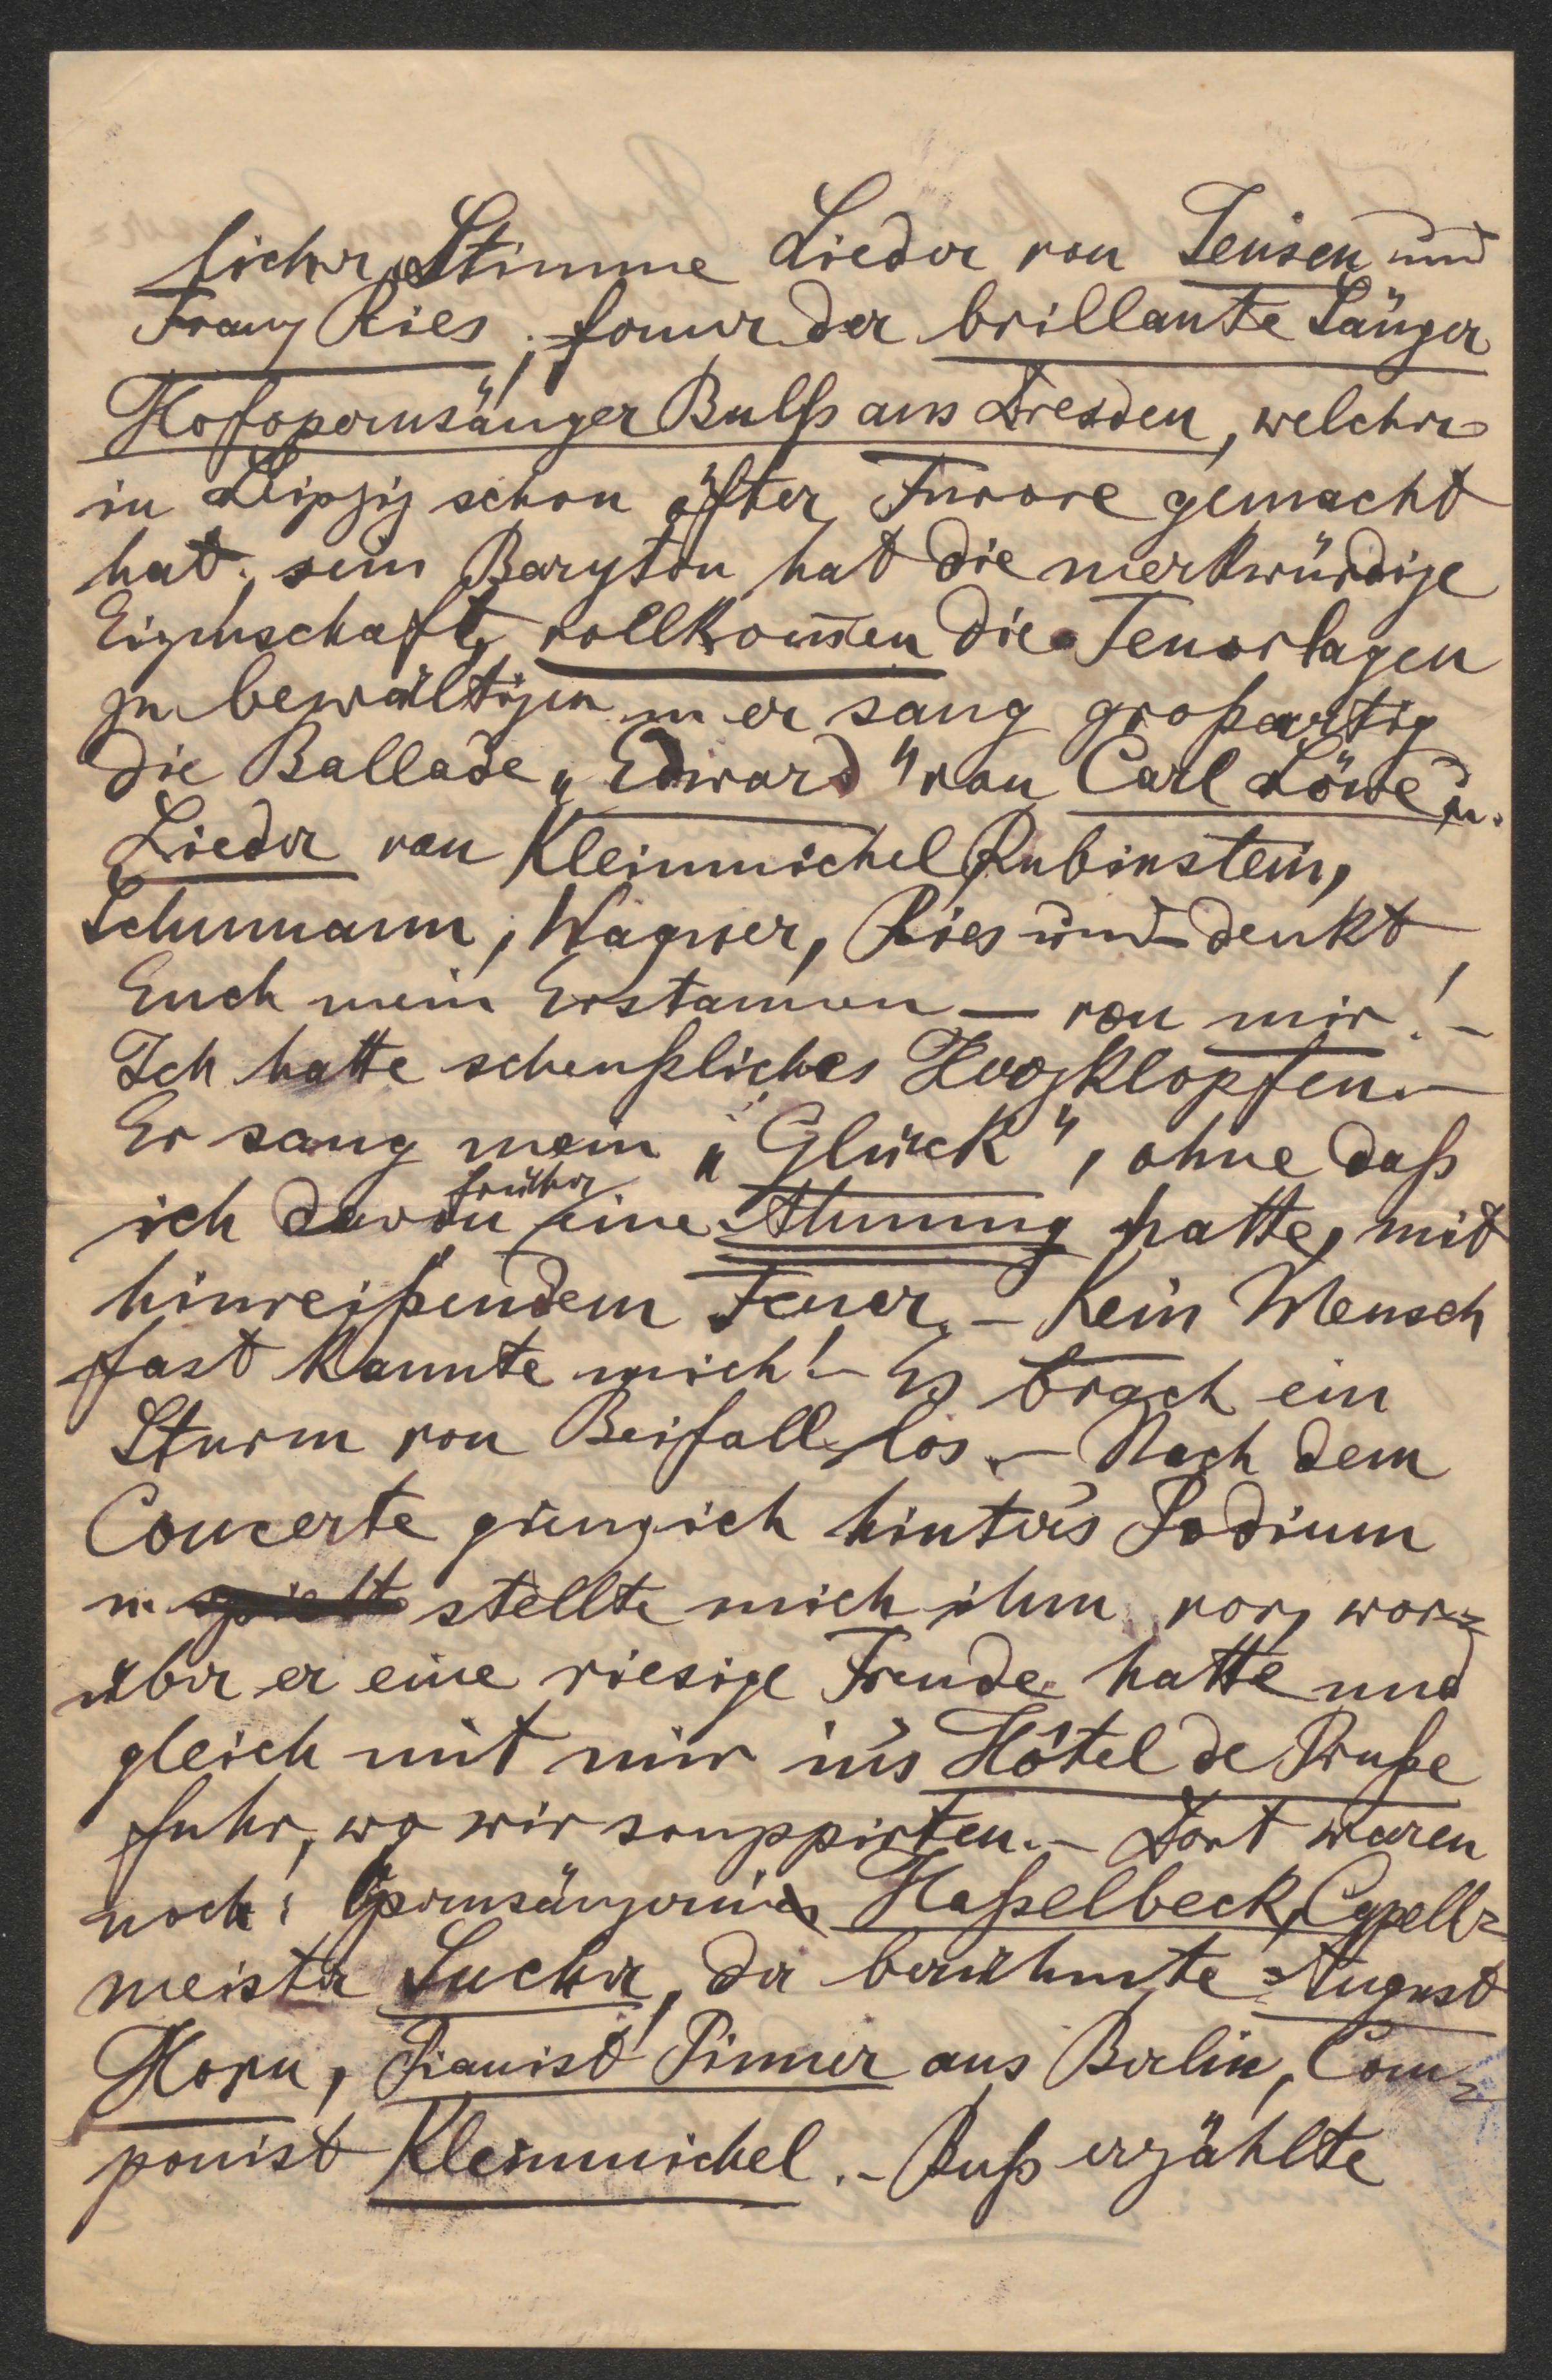 licher Stimme Lieder von Jensen und
Franz Ries, ferner der brillante Sänger
Hofopernsänger Bulß aus Dresden, welcher
in Leipzig schon öfter Furore gemacht
hat; sein Baryton hat die merkwürdige
Eigenschaft, vollkom̅en die Tenorlagen
zu bewältigen u er sang großartig
die Ballade „Edward" von Carl Löwe u.
Lieder von Kleinmichel, Rubinstein,
Schumann, Wagner, Ries und denkt
Euch mein Erstaunen — von mir! —
Ich hatte scheußliches Herzklopfen. —
Er sang mein „Glück", ohne daß
ich davon früher eine Ahnung hatte, mit
hinreißendem Feuer. — Kein Mensch
fast kannte mich! — Es brach ein
Sturm von Beifall los. — Nach dem
Concerte gieng ich hinter's Podium
u. spielte stellte mich ihm vor, wor=
über er eine riesige Freude hatte und
gleich mit mir in's Hôtel de Pruße
fuhr, wo wir souppirten. — Dort waren
noch: Opernsängerin Haßelbeck, Capell=
meister Sucher, der berühmte August
Horn, Pianist Pinner aus Berlin, Com=
ponist Kleinmichel. — Bulß erzählte